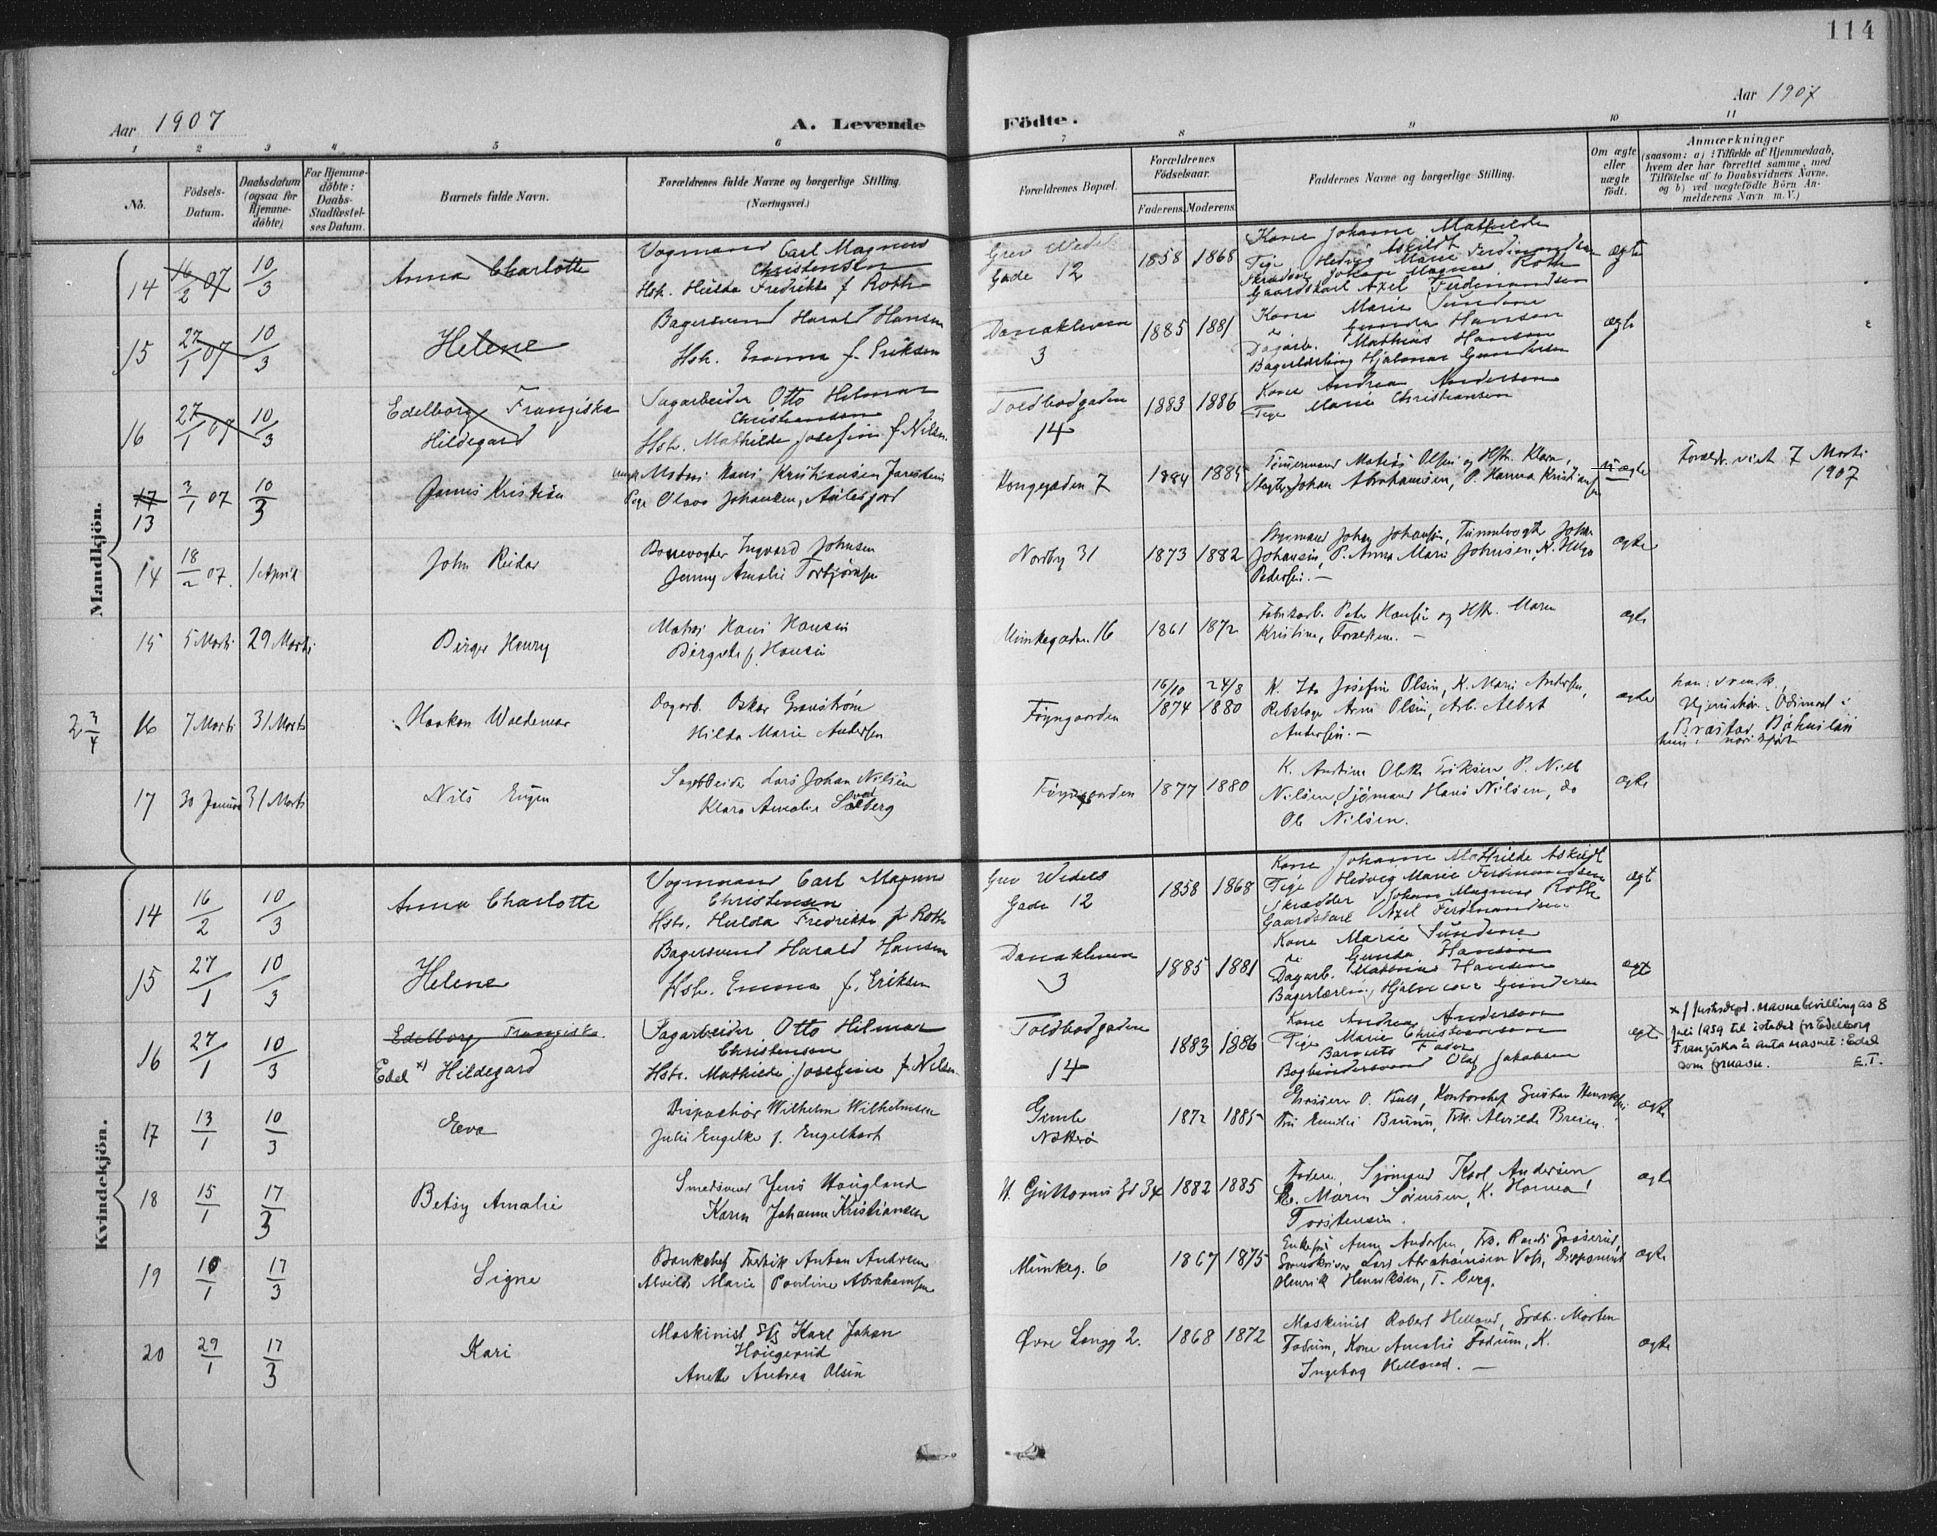 114
Aar 1907
A. Levende Födte.
Aar 1907
1 2 3 4 5 6 7 8 9 10 11
No.
Födsels-Datum.
Daabsdatum (ogsaa for Hjemmedöbte)
For Hjemmedöbte: Daabs-Stadfæstelses Datum.
Barnets fulde Navn.
Forældrenes fulde Navne og borgerlige Stilling.
(Næringsvei.)
Forældrenes Bopæl.
Forældrenes Födselsaar.
Faderens. Moderens.
Faddernes Navne og borgerlige Stilling.
Om ægte eller uægte födt.
Anmærkninger
(saasom: a) i Tilfælde af Hjemmedaab, hvem der har forrettet samme, med Tilföielse af to Daabsvidners Navne, og b) ved uægtefödte Börn Anmelderens Navn m. V.)
Mandkjön.
14 16/2 07 10/3 Anna Charlotte
Vogmand Carl Magnus Christensen
Hst. Hulda Fredrikke f Roth
Grev Wedels Gade 12 1858 1868
Kone Johanne Mathilde Askildt
Pige Hedvig Marie Ferdinandsen
Skrædder Johan Magnus Roth
Gaardskarl Axel Ferdinandsen
ægte
15 27/1 07 10/3 Helene
Bagersvend Harald Hansen
Hst. Emma f. Eriksen
Danakleven 3 1885 1881
Kone Marie Sundene
Gunda Hansen
Dagarb. Mathias Hansen
Bagerlærling Hjalmar Gundersen
ægte
16 27/1 07 10/3 Edelborg Franziska Hildegard
Sagarbeider Otto Hilmar Christensen
Hst. Mathilde Josefine f. Nilsen
Toldbodgaden 14 1883 1886
Kone Andrea Andersen
Pige Marie Christiansen
17 13 3/1 07 10/3 Jannis Kristian
Matros Hans Kristiansen
Pige Olava Johansen,
Kongegaden 7 1884 1885
Tømmermand Matias Olsen og Hst. Klara,
Johan Abrahamsen, P. Hanna Kristiansen
uægte
Foræld. viet 7 Marts 1907
14 18/2 07. 1 April John Reidar
Banevogter Ingvard Johnsen
Jenny Amalie Torbjørnsen
Nordby 31 1873 1882
Johan Johansen,
Johansen, P. Anna Marie Johnsen, K. Helga
Pedersen. —
ægte
15 5 Marts 29 Marts Birger Henry
Matros Hans Hansen
Birgitte f. Hansen
Munkegaden 16 1861 1872
Fabrikarb. Peter Hansen og Hst. Maren
Kristine, Forældrene. —
ægte
2 3/4 16 7 Marts 31 Marts Haakon Waldemar
Dagarb. Oskar Granström
Hilda Marie Andersen
Føyngaarden 16/10 1874 24/8 1880
K. Ida Josefine Olsen, K. Marie Andersen,
Rebslager Arne Olsen, Arb. Albert
Andersen. —
ægte
han: svensk,
17 30 Januar 31 Marts Nils Eugen
Sagarbeider Lars Johan Nilsen
Klara Amalie Solberg
Føyngaarden 1877 1880
K. Eriksen, P.
Nilsen, Sjømand Hans Nilsen, do
Ole Nilsen.
ægte
Kvindekjön.
14 16/2 10/3 Anna Charlotte
Vogmand Carl Magnus Christensen
Hst. Hulda Fredrikke f. Roth
Grev Wedels Gade 12 1858 1868
Kone Johanne Mathilde Askildt
Pige Hedvig Marie Ferdinandsen
Skrædder Johan Magnus Roth
Gaardskarl Axel Ferdinandsen
ægt
15 27/1 10/3 Helene
Bagersvend Harald Hansen
Hst. Emma f. Eriksen
Danakleven 3 1885 1881
Kone Marie Sundene
Gunda Hansen
Dagarb. Mathias Hansen
Bagerlærling Hjalmar Gundersen
ægt
16 27/1 10/3 Edelborg Franziska
Edel x) Hildegard
Sagarbeider Otto Hilmar Christensen
Hst. Mathilde Josefine f. Nilsen
Toldbodgaden 14 1883 1886
Kone Andrea Andersen
Pige Marie Christiansen
Barnets Fader
Bogbindersvend Olaf Jakobsen
ægt
x) Justisdept. navnebevilling av 8
juli 1959 til istedet for Edelborg
Franziska å anta navnet: Edel
som fornavn. E.T.
17 13/1 10/3 Eeva
Dispachør Wilhelm Wilhelmsen
Julie Engelke f. Engelhart
Gimle Nøtterø 1872 1885
Grosserer O. Bull, Kontorchef Gustav Henriksen
Fru Emilie Bruun, Frk. Alvilde Breien.
ægte
18 15/1 17/3 Betsy Amalie
Smedsvend Jens Haugland
Karen Johanne Kristiansen
H. Guttorms Gd 34 1882 1885
Faderen, Sjømand Karl Andersen
Maren Sørensen, K. Hanna
Torstensen.
ægte
19 10/1 17/3 Signe
Bankchef Fredrik Anton Andersen
Alvilde Marie Pauline Abrahamsen
Munkeg. 6 1867 1875
Enkefru Anna Andersen, Frk. Randi
Sorenskriver Lars Abrahamsen Voss,
Henrik Henriksen, T. berg.
ægte
20 29/1 17/3 Kari
Maskinist Karl Johan Haugerud
Anette Andrea Olsen
Øvre Langg 2. 1868 1872
Maskinist Robert Helland, Morten
Fadum, Kone Amalie Fadum, K.
Ingeborg Helland. —
ægte